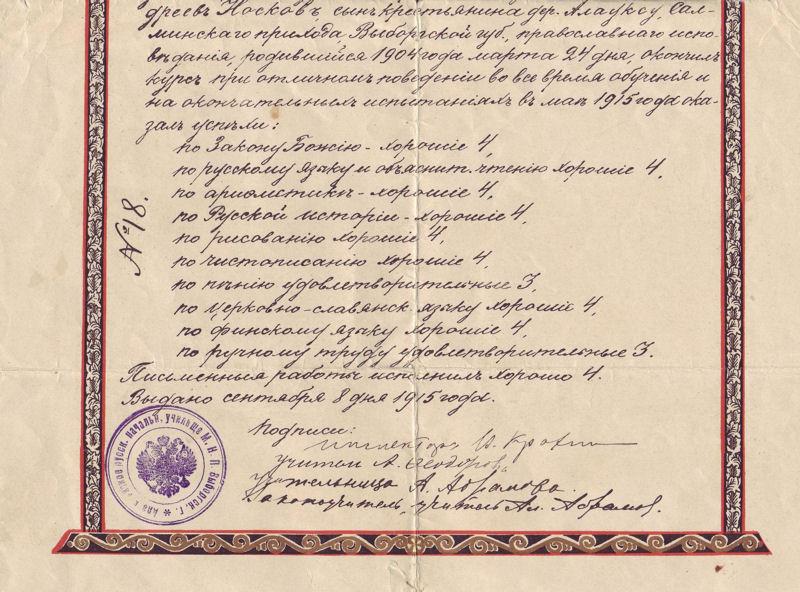 дреевъ Носковъ сынъ крестьянина дер. Алауксу, Сал-
минскаго прихода Выборгской губ., православнаго испо-
вѣданія, родившійся 1904 года марта 24 дня, окончилъ
курсъ при отличномъ поведеніи во все время обученія и
на окончательныхъ испытаніяхъ въ маѣ 1915 года ока-
залъ успѣхи:
по Закону Божію - хорошіе 4,
по русскому языку и объяснит. чтенію хорошіе 4,
по ариѳметикѣ - хорошіе 4,
по Русской исторіи - хорошіе 4,
по рисованію хорошіе 4,
по чистописанію хорошіе 4,
по пѣнію удовлетворительные 3,
по церковно-славянск. языку хорошіе 4,
по финскому языку хорошіе 4,
по ручному труду удовлетворительные 3.
Письменныя работы исполнилъ хорошо 4.
Выдано сентября 8 дня 1915 года.
№ 18.
Подписи:
инспекторъ
учитель А. Ѳеодоровъ
учительница А. Абрамова.
Законоучитель, учитель Ал. Абрамов.
русск. начальн. училище М. Н. П. Выборгск. г.